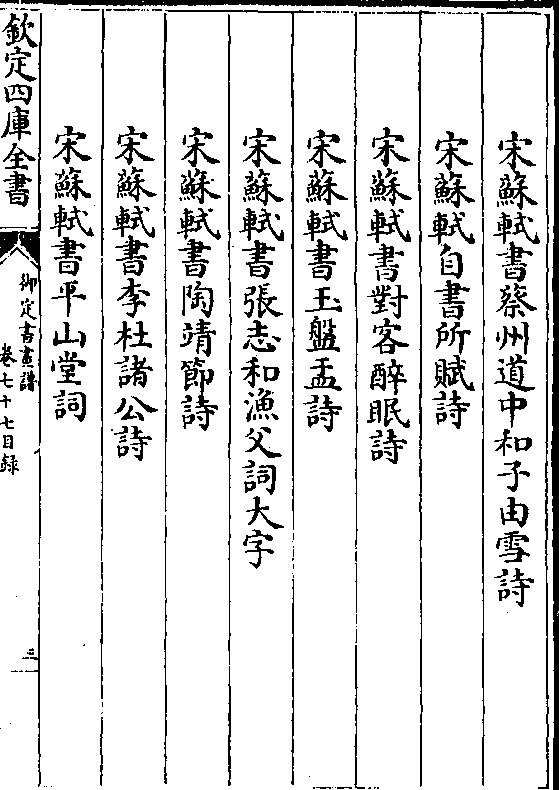 宋蘇軾書蔡州道中和子由雪詩
宋蘇軾自書所賦詩
宋蘇軾書對客醉眠詩
宋蘇軾書玉盤盂詩
宋蘇軾書張志和漁父詞大字
宋蘇軾書陶靖節詩
宋蘇軾書李杜諸公詩
宋蘇軾書平山堂詞
欽定四庫全書
御定書畫譜
卷七十七目録
三